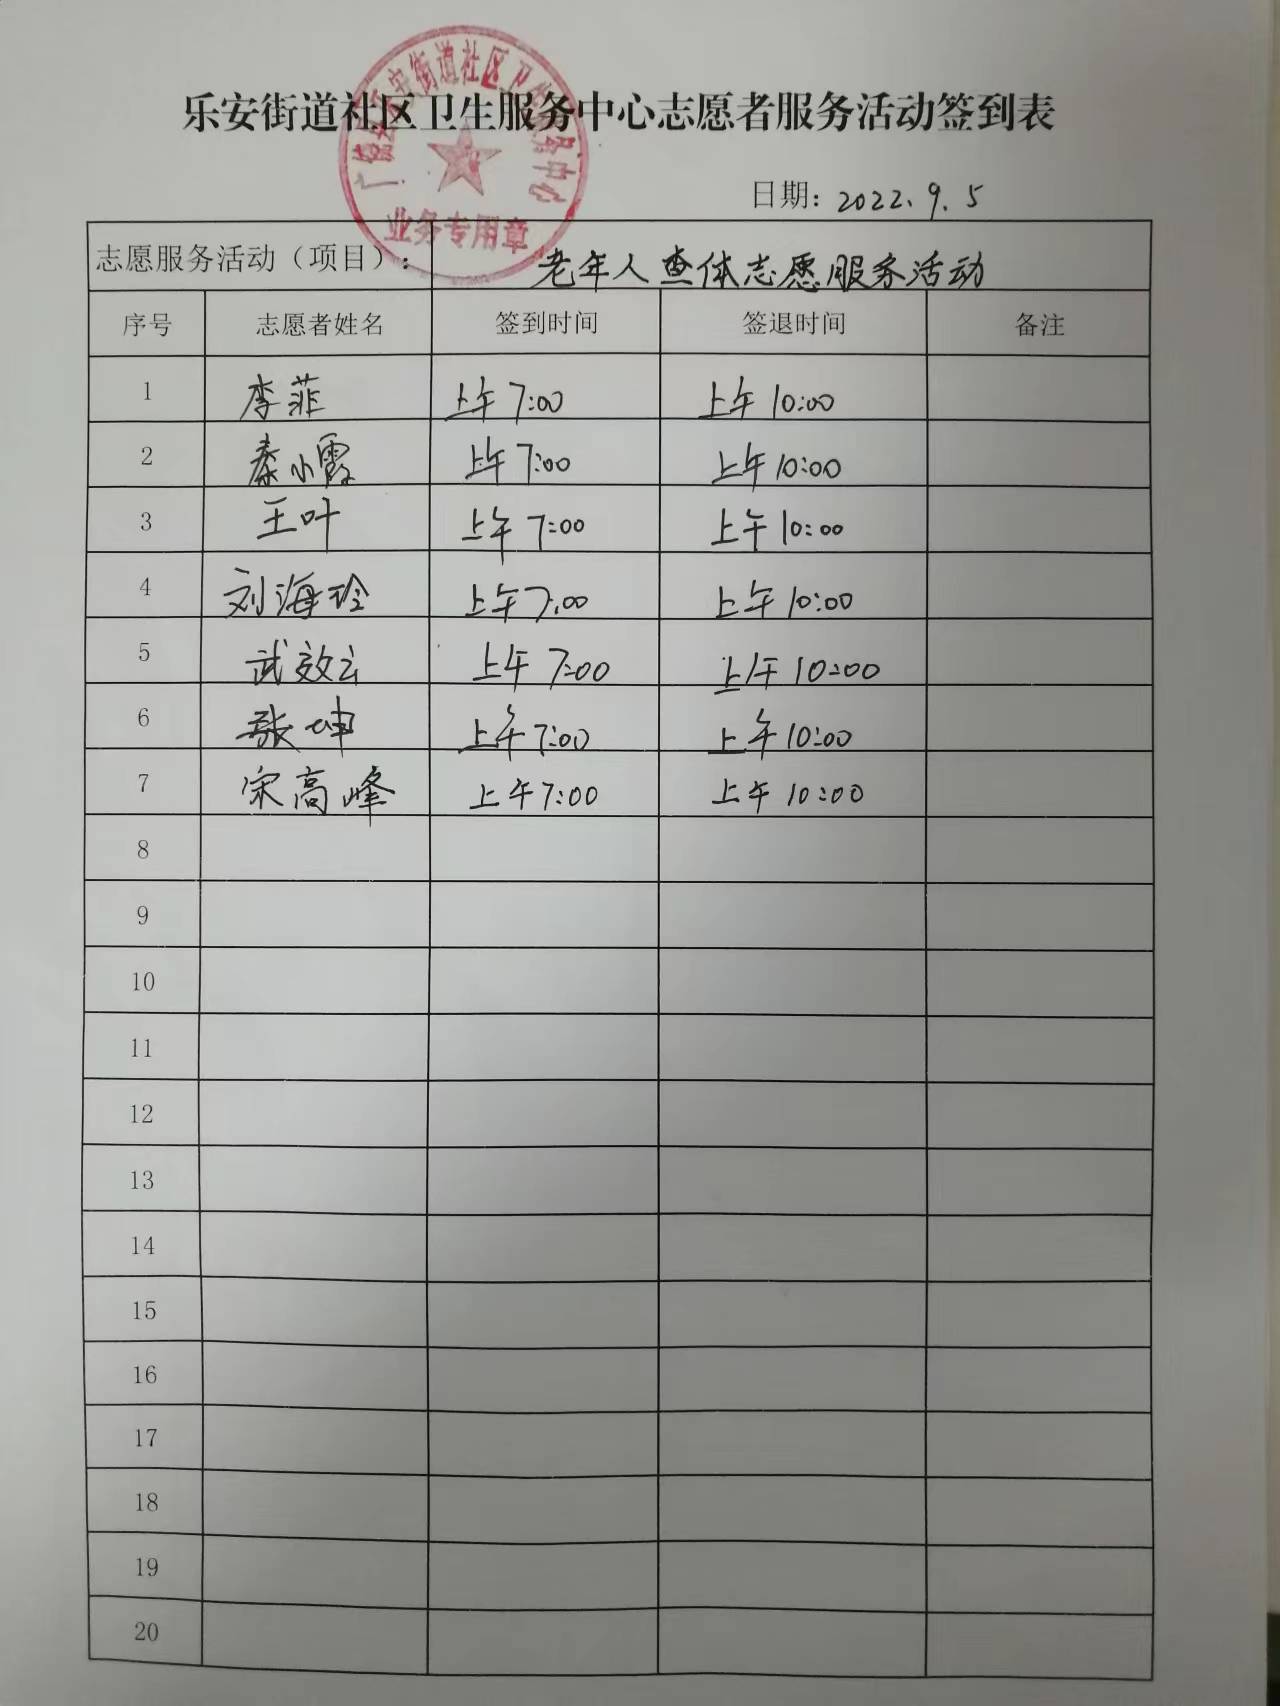 乐安街道社区卫生服务中心志愿者服务活动签到表
业务专用章
日期：2022.9.5
志愿服务活动（项目）： 老年人查体志愿服务活动
序号 志愿者姓名 签到时间 签退时间 备注
1 李菲 上午7:00 上午10:00
2 秦小霞 上午7:00 上午10:00
3 王叶 上午7:00 上午10:00
4 刘海玲 上午7:00 上午10:00
5 武效云 上午7:00 上午10:00
6 张坤 上午7:00 上午10:00
7 宋高峰 上午7:00 上午10:00
8
9
10
11
12
13
14
15
16
17
18
19
20